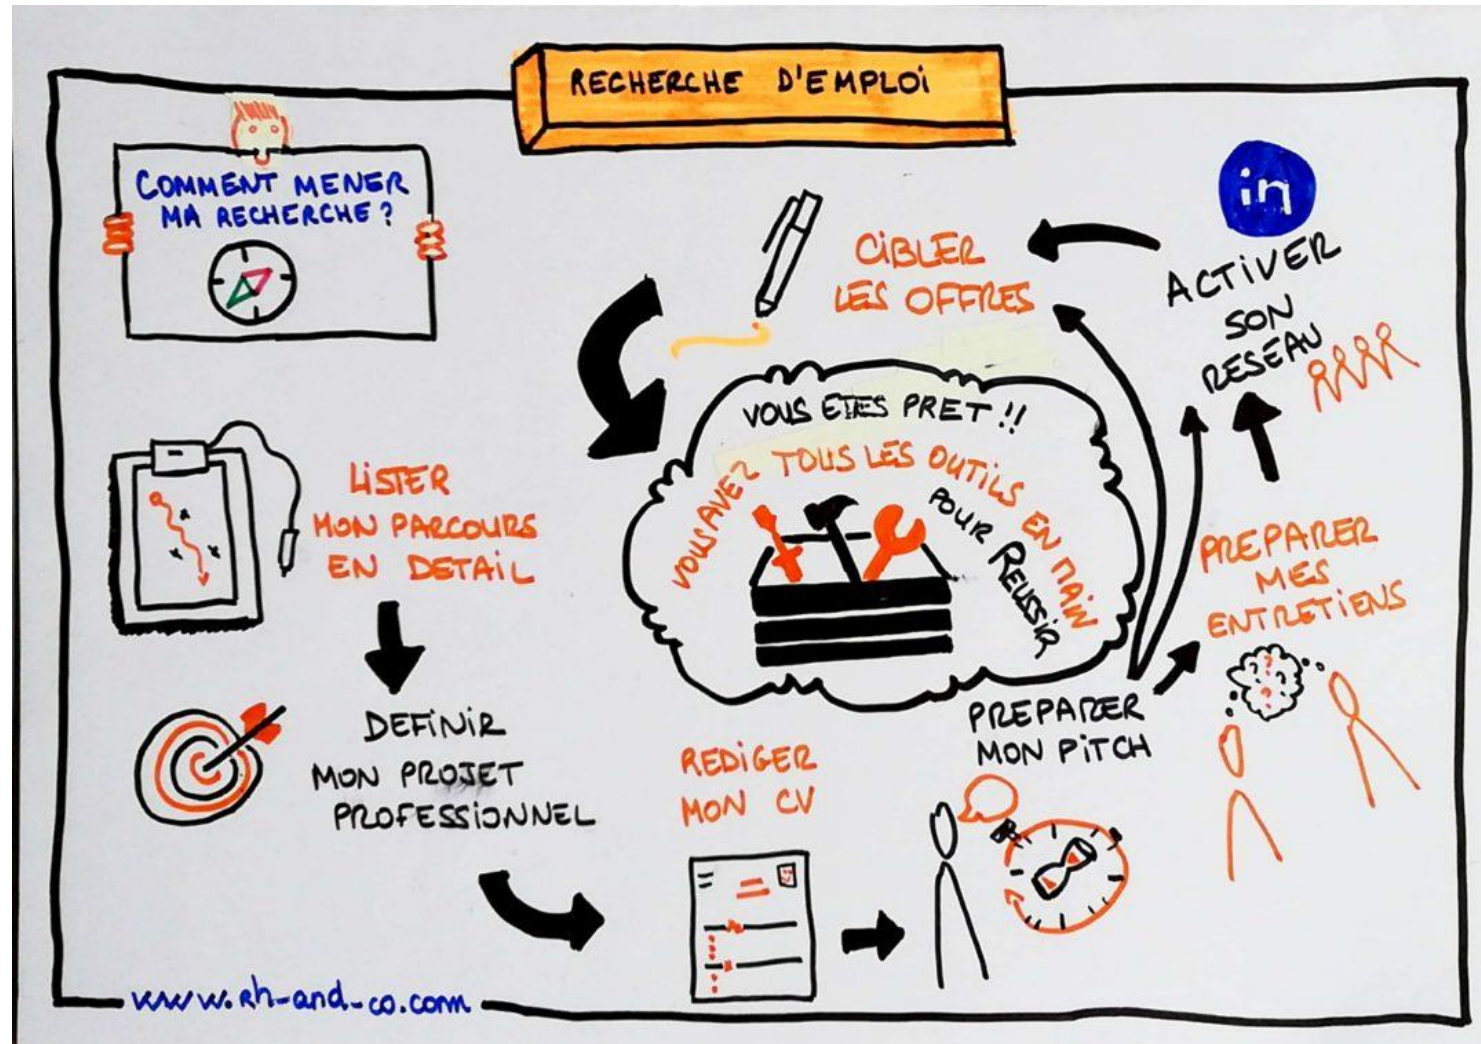 RECHERCHE D'EMPLOI
COMMENT MENER
MA RECHERCHE?
LISTER
MON PARCOURS
EN DETAIL
DEFINIR
MON PROJET
PROFESSIONNEL
REDIGER
MON CV
PREPARER
MON PITCH
PREPARER
MES
ENTRETIENS
in
ACTIVER
SON
RESEAU
CIBLER
LES OFFRES
VOUS ETES PRET !!
VOUS AVEZ TOUS LES OUTILS EN MAIN
POUR REUSSIR
www.rh-and-co.com